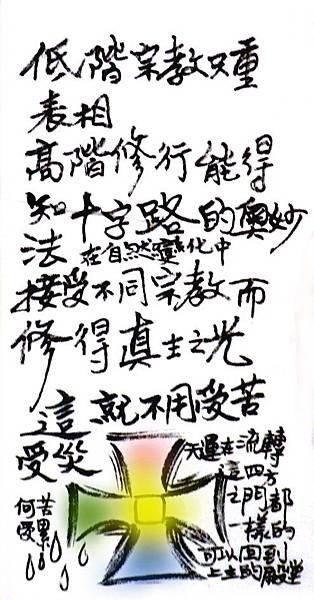 低階宗教只重
表相
高階修行能得
知十字路的奧妙
法在自然變化中
接受不同宗教而
修得真主之光
這就不用受苦
受災
何苦
受累
天運在流轉
這四方
之門都
一樣的
可以回到
上主的殿堂